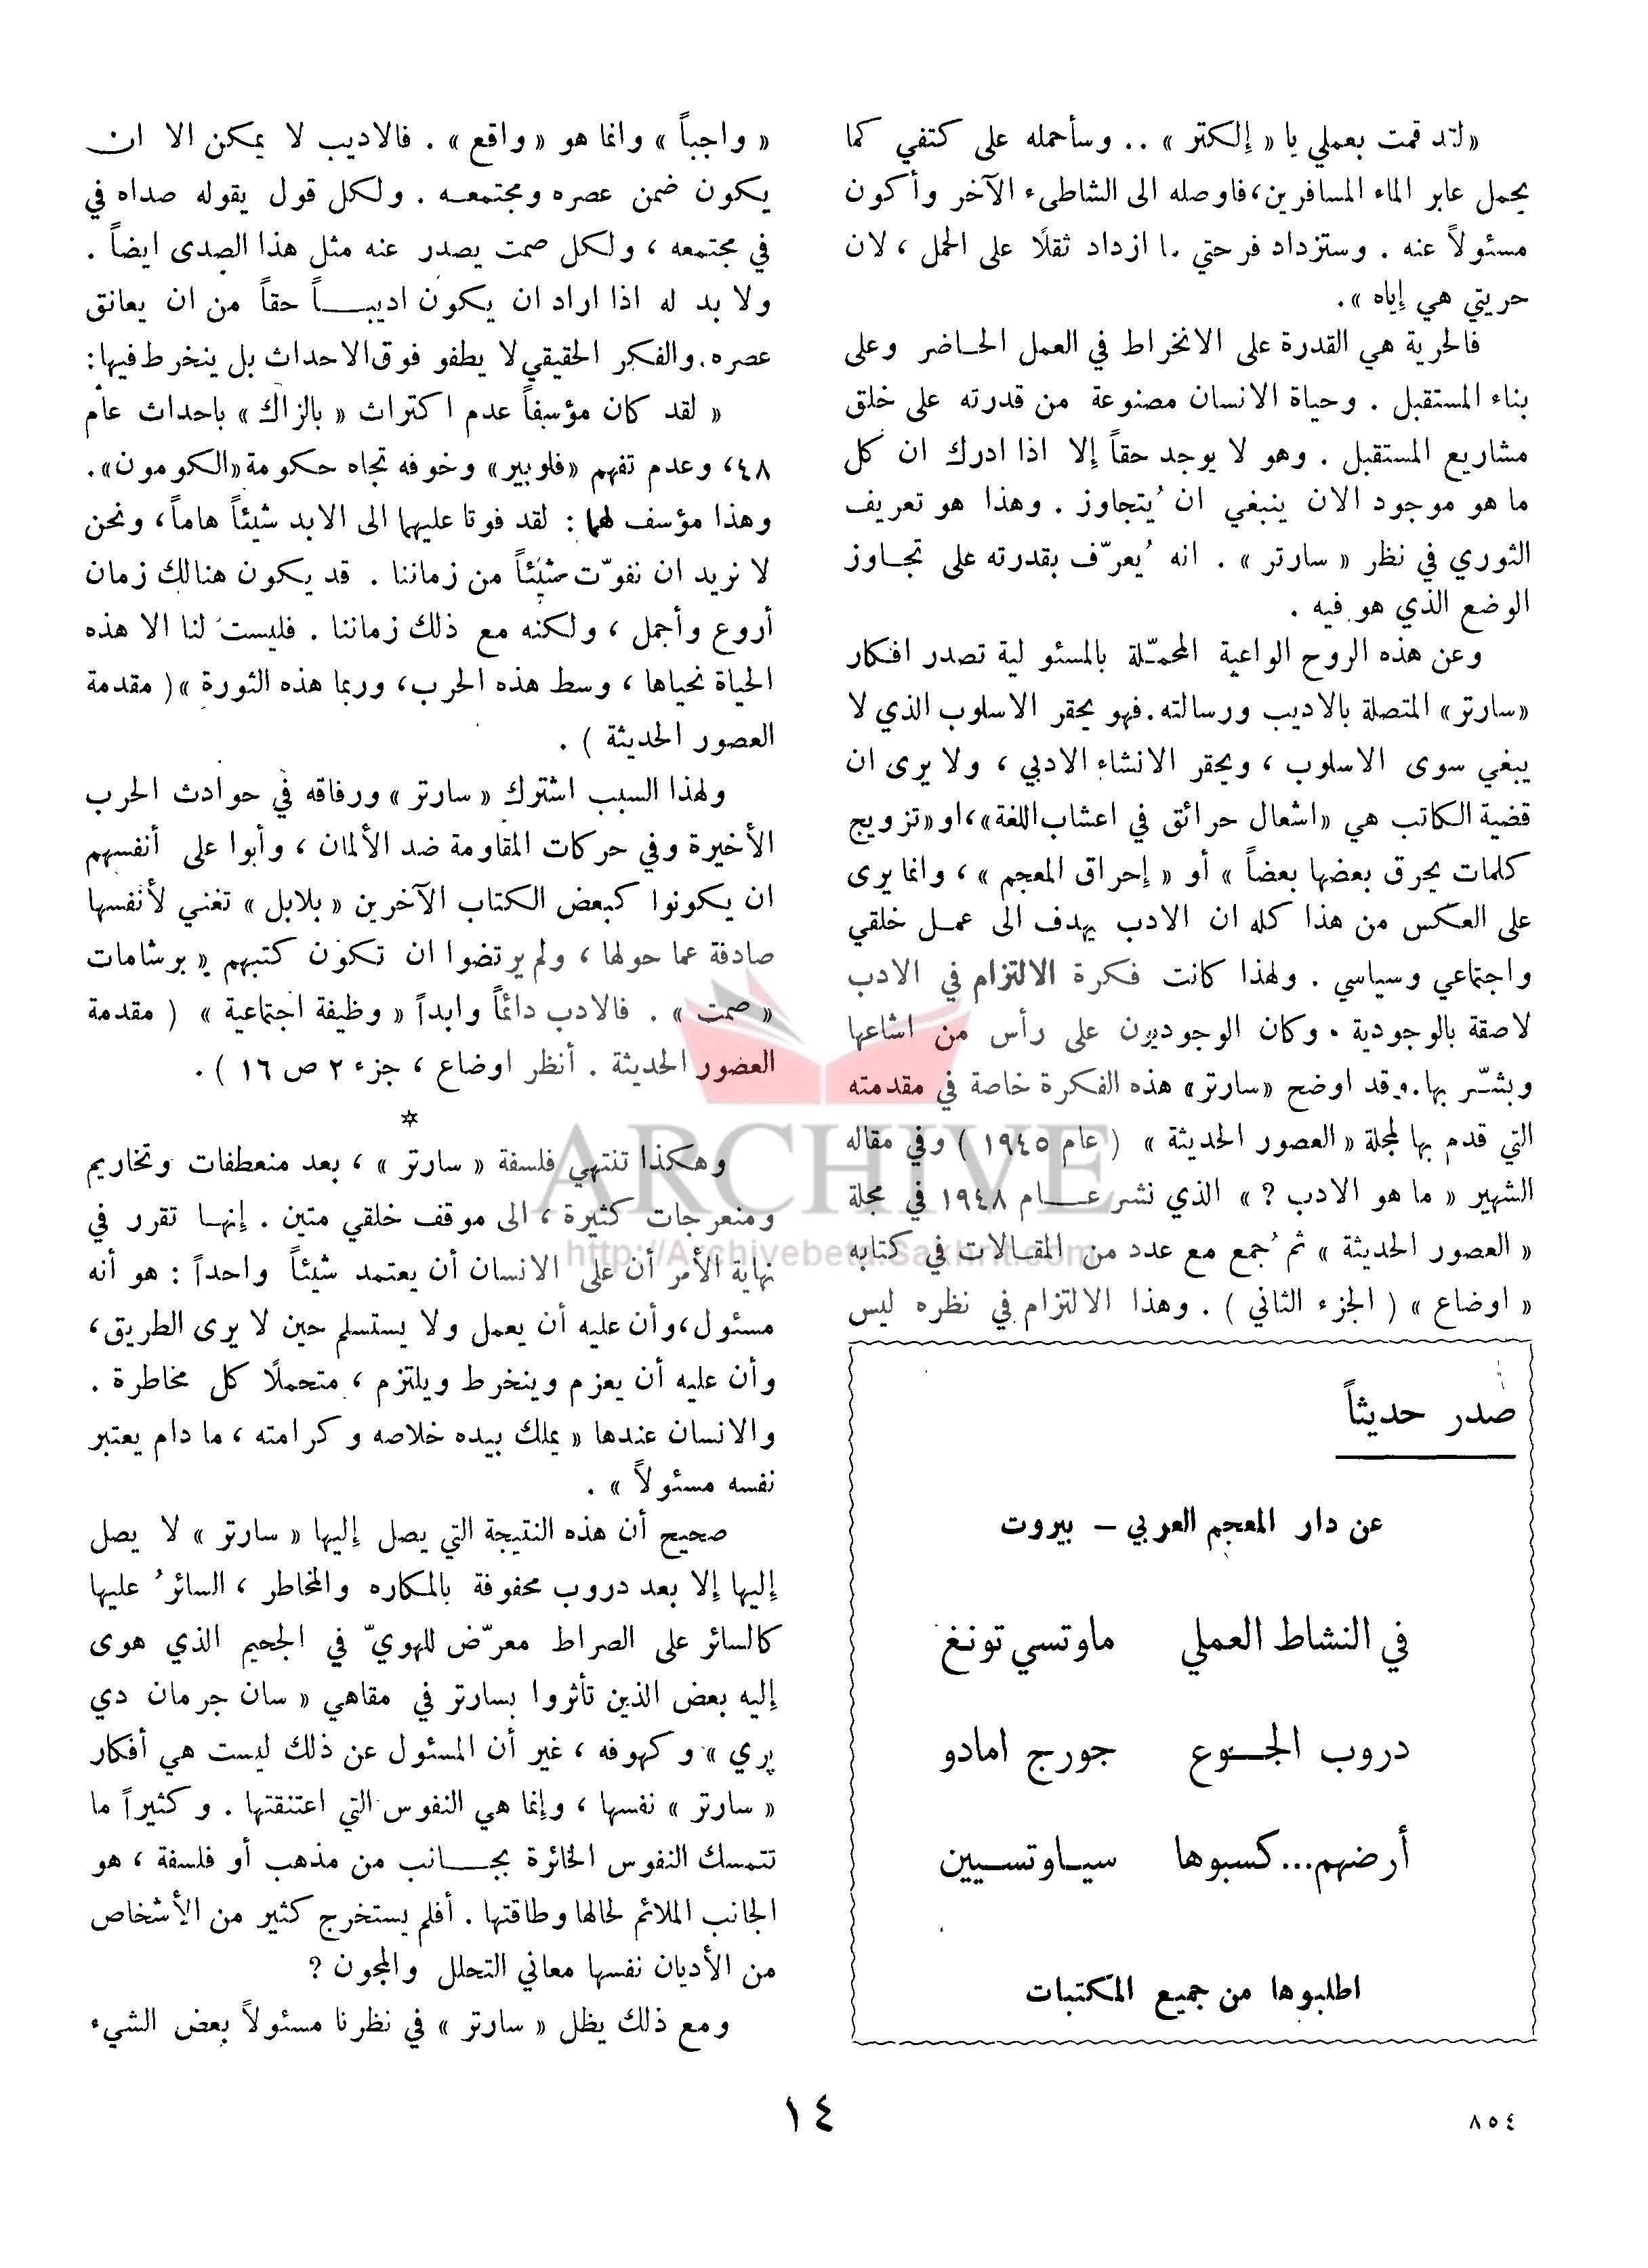 «لقد قمت بعملي يا « إلكتر » .. وسأحمله على كتفي كما
يحمل عابر الماء المسافرين،فاوصله الى الشاطىء الآخر وأكون
مسئولاً عنه . وستزداد فرحتي ما ازداد ثقلًا على الحمل ، لان
حريتي هي إياه ».
فالحرية هي القدرة على الانخراط في العمل الحـاضر وعلى
بناء المستقبل . وحياة الانسان مصنوعة من قدرته على خلق
مشاريع المستقبل . وهو لا يوجد حقاً إلا اذا ادرك ان كل
ما هو موجود الان ينبغي ان ُيتجاوز . وهذا هو تعريف
الثوري في نظر « سارتر » . انه ُيعرّف بقدرته على تجـاوز
الوضع الذي هو فيه .
وعن هذه الروح الواعية المحمـّلة بالمسئو لية تصدر افكار
«سارتر» المتصلة بالاديب ورسالته.فهو يحقر الاسلوب الذي لا
يبغي سوى الاسلوب ، ويحقر الانشاء الادبي ، ولا يرى ان
قضية الكاتب هي «اشعال حرائق في اعشاب اللغة»،او«تزويج
كلمات يحرق بعضها بعضاً » أو « إحراق المعجم » ، وانما يرى
على العكس من هذا كله ان الادب يهدف الى عمـل خلقي
واجتماعي وسياسي . ولهذا كانت فكرة الالتزام في الادب
لاصقة بالوجودية . وكان الوجوديون على رأس من اشاعها
وبشـّر بها.وقد اوضح «سارتر» هذه الفكرة خاصة في مقدمته
التي قدم بها لمجلة « العصور الحديثة » ( عام ١٩٤٥ ) وفي مقاله
الشهير « ما هو الادب ؟ » الذي نشر عــام ١٩٤٨ في مجلة
« العصور الحديثة » ثم ُجمع مع عدد من المقـالات في كتابه
« اوضاع » ( الجزء الثاني ) . وهذا الالتزام في نظره ليس
صدر حديثاً
عن دار المعجم العربي – بيروت
في النشاط العملي ماوتسي تونغ
دروب الجـوع جورج امادو
أرضهم...كسبوها سيـاوتسـيين
اطلبوها من جميع المكتبات
« واجباً » وانما هو « واقع » . فالاديب لا يمكن الا ان
يكون ضمن عصره ومجتمعـه . ولكل قول يقوله صداه في
في مجتمعه ، ولكل صمت يصدر عنه مثل هذا الصدى ايضاً .
ولا بد له اذا اراد ان يكون اديبـــاً حقاً من ان يعانق
عصره.والفكر الحقيقي لا يطفو فوق الاحداث بل ينخرط فيها:
« لقد كان مؤسفاً عدم اكتراث « بالزاك » باحداث عام
٤٨، وعدم تفهم «فلوبير» وخوفه تجاه حكومة «الكومون».
وهذا مؤسف لهما : لقد فوتا عليهما الى الابد شيئاً هاماً، ونحن
لا نريد ان نفوّت شيئاً من زماننا . قد يكون هنالك زمان
أروع وأجمل ، ولكنه مع ذلك زماننا . فليست لنا الا هذه
الحياة نحياها ، وسط هذه الحرب، وربما هذه الثورة »( مقدمة
العصور الحديثة ) .
ولهذا السبب اشترك « سارتر » ورفاقه في حوادث الحرب
الأخيرة وفي حركات المقاومة ضد الألمان ، وأبوا على أنفسهم
ان يكونوا كبعض الكتاب الآخرين « بلابل » تغني لأنفسها
صادفة عما حولها ، ولم يرتضوا ان تكون كتبهم « برشامات
« صمت » . فالادب دائماً وابداً « وظيفة اجتماعية » ( مقدمة
العصور الحديثة . أنظر اوضاع ، جزء ٢ ص ١٦ ) .
*
وهكذا تنتهي فلسفة « سارتر » ، بعد منعطفات وتخاريم
ومنعرجات كثيرة ، الى موقف خلقي متين . إنهـا تقرر في
نهاية الأمر أن على الانسان أن يعتمد شيئاً واحداً : هو أنه
مسئول،وأن عليه أن يعمل ولا يستسلم حين لا يرى الطريق،
وأن عليه أن يعزم وينخرط ويلتزم ، متحملًا كل مخاطرة .
والانسان عندها « يملك بيده خلاصه وكرامته ، ما دام يعتبر
نفسه مسئولاً » .
صحيح أن هذه النتيجة التي يصل إليها « سارتر » لا يصل
إليها إلا بعد دروب محفوفة بالمكاره والمخاطر ، السائرُ عليها
كالسائر على الصراط معرّض للهويّ في الجحيم الذي هوى
إليه بعض الذين تأثروا بسارتر في مقاهي « سان جرمان دي
پري » وكهوفه ، غير أن المسئول عن ذلك ليست هي أفكار
« سارتر » نفسها ، وإنما هي النفوس التي اعتنقتها . وكثيراً ما
تتمسك النفوس الخائرة بجــانب من مذهب أو فلسفة ، هو
الجانب الملائم لحالها وطاقتها . أفلم يستخرج كثير من الأشخاص
من الأديان نفسها معاني التحلل والمجون ؟
ومع ذلك يظل « سارتر » في نظرنا مسئولاً بعض الشيء
١٤
٨٥٤
ARCHIVE
http://Archivebeta.Sakhrit.com